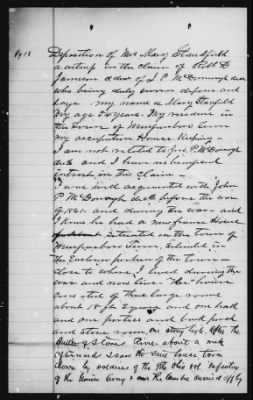 Pg 18
Deposition of Mrs Mary Stanfield
a witness in the claim of Robt D
Jamison admr of J P McDonough decd
who being duly sworn deposes and
says my name is Mary Stanfield
My age 54 years. My residence in
the town of Murfreesboro Tenn
my occupation House Keeping
I am not related to Jno. P. McDonough
decd and I have no beneficial
interest in the claim
I was well acquainted with John
P McDonough decd before the war
of 1861 and during the war and
I knew he had a new frame House
situated in the town of
Murfreesboro Tenn, situated in
the Eastern portion of the town
close to where I lived during the
war and now live. The house
consisted of three large rooms
about 18 ft square and one hall
and one portico and back porch
and Stone room, one story high. After the
Battle of Stones River about a week
I saw the House torn
down by soldiers of the 9th Ohio vol Infantry
of the Union Army & saw the lumber carried off by